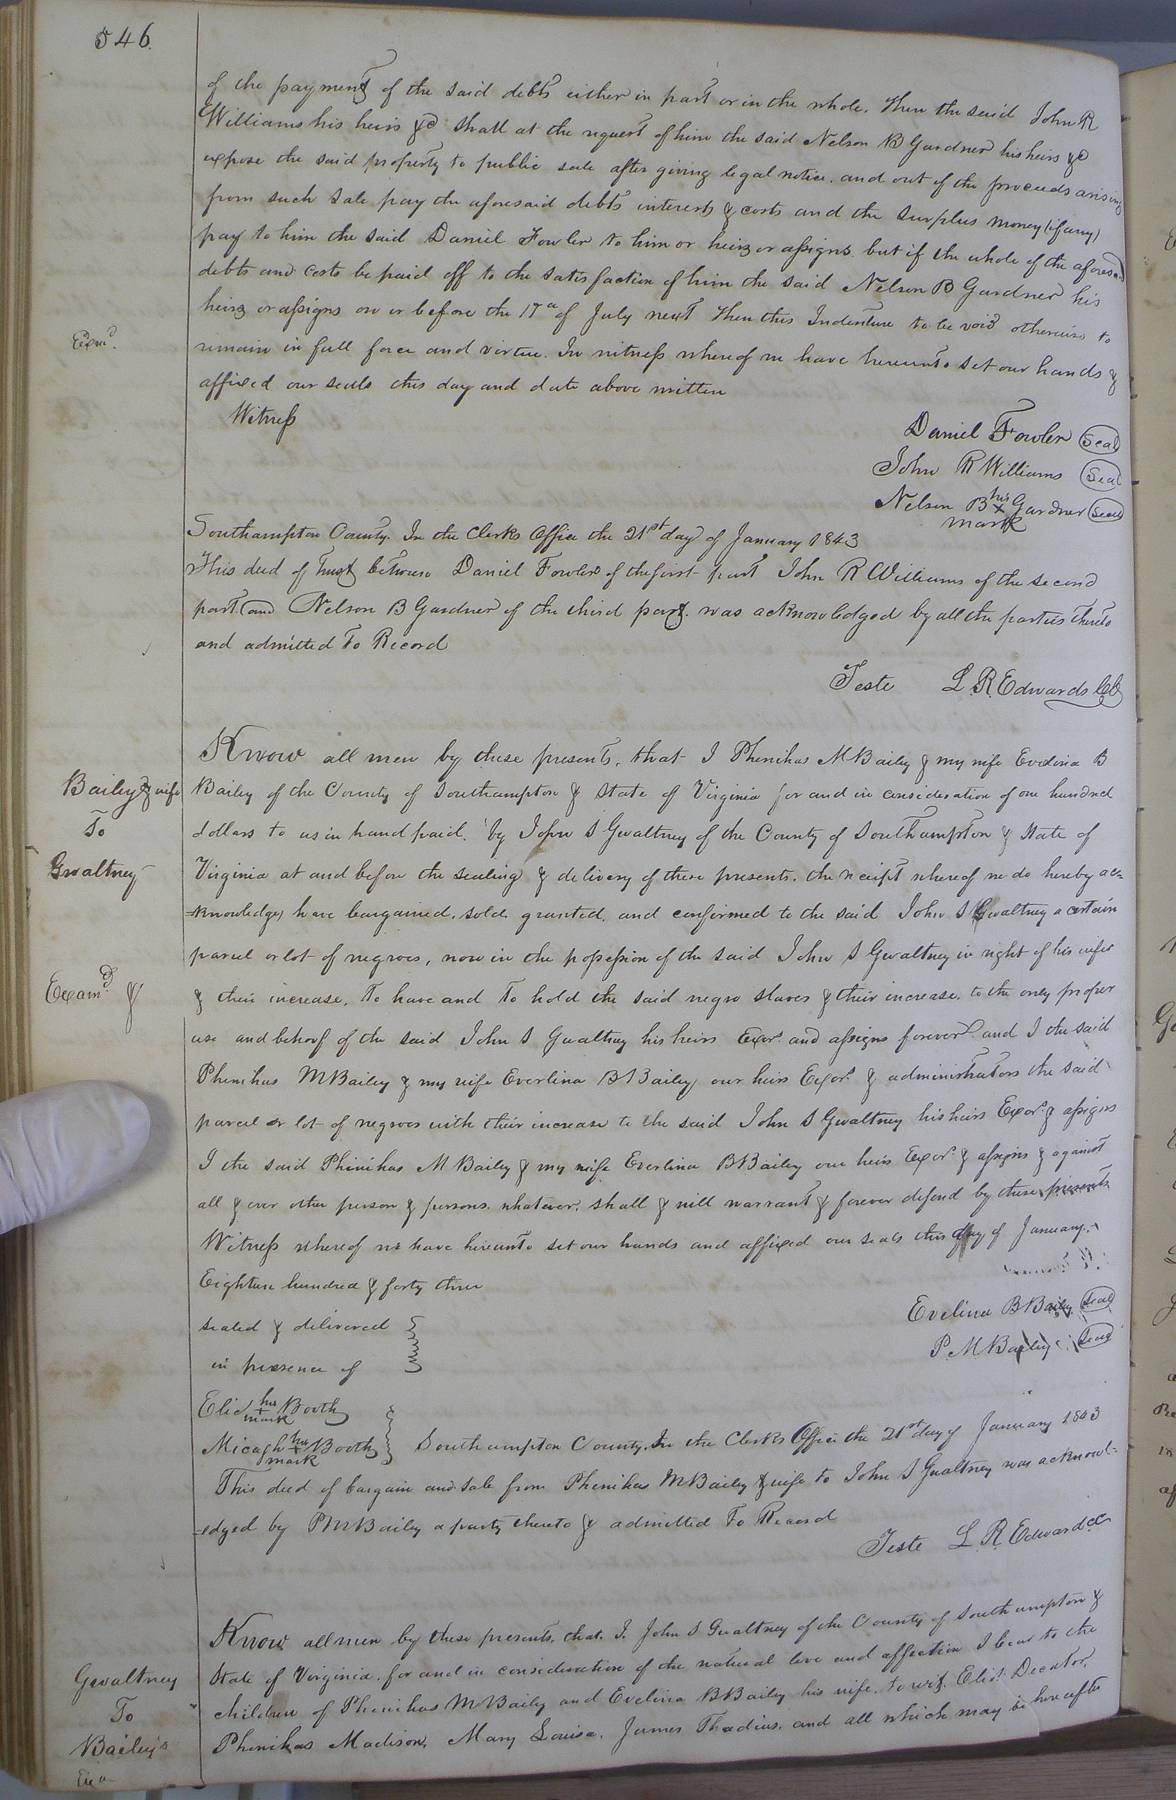 546.
of the payment of the said debts either in part or in the whole. Then the said John R
Williams his heirs &c shall at the request of him the said Nelson B Gardner his heirs &c
expose the said property to public sale after giving legal notice. and out of the proceeds arising
from such sale pay the aforesaid debts interests & costs and the surplus money (if any)
pay to him the said Daniel Fowler to him or heirs or assigns but if the whole of the aforesaid
debts and costs be paid off to the satisfaction of him the said Nelson B Gardner his
heirs or assigns on or before the 17th of July next Then this Indenture to be void otherwise to
Exmd.
remain in full force and virtue. In witness whereof we have hereunto set our hands &
affixed our seals this day and date above written
Witness
Daniel Fowler Seal
John R Williams Seal
Nelson B his x mark Gardner Seal
Southampton County. In the Clerks Office the 21st day of January 1843
This deed of trust between Daniel Fowler of the first part John R Williams of the second
part and Nelson B Gardner of the third part. was acknowledged by all the parties thereto
and admitted To Record
Teste L. R. Edwards
Know all men by these presents, that I Phenihas M Bailey & my wife Evelina B
Bailey & wife
Bailey of the County of Southampton & State of Virginia for and in consideration of one hundred
To
dollars to us in hand paid. by John S Gwaltney of the County of Southampton & State of
Gwaltney
Virginia at and before the sealing & delivery of these presents. the receipt whereof we do hereby ac=
=knowledge, have bargained, sold, granted, and confirmed to the said John S Gwaltney a certain
parcel or lot of negroes, now in the possession of the said John S Gwaltney in right of his wife
Examd. &
& their increase, To have and To hold the said negro slaves & their increase. to the only proper
use and behoof of the said John S Gwaltney his heirs Exors. and assigns forever and I the said
Phenihas M Bailey & my wife Everlina B Bailey our heirs Exors. & administrators the said
parcel or lot of negroes with their increase to the said John S Gwaltney his heirs Exors. & assigns
I the said Phinihas M Bailey & my wife Everlina B Bailey our heirs Exors. & assigns & against
all & ever other person & persons. whatever, shall & will warrant & forever defend by these presents
Witness whereof we have hereunto set our hands and affixed our seals this day of January
Eighteen hundred & forty three
Evelina B Bailey Seal
sealed & delivered
P. M Bailey Seal
in presence of
his mark Booth
Micagh his x mark Booth
Southampton County. In the Clerks Office the 21st day of January 1843
This deed of bargain and sale from Phenihas M Bailey & wife to John S Gwaltney was acknowl=
=edged by P M Bailey a party thereto & admitted To Record
Teste L. R. Edwards
Know all men by these presents, that. I. John S Gwaltney of the County of Southampton &
Gwaltney
State of Virginia. for and in consideration of the natural love and affection I bear to the
To
children of Phenihas M Bailey and Evelina B Bailey his wife. to wit. Decator,
Bailey's
Phenihas Madison, Mary Louisa. James Thadius. and all which may be hereafter